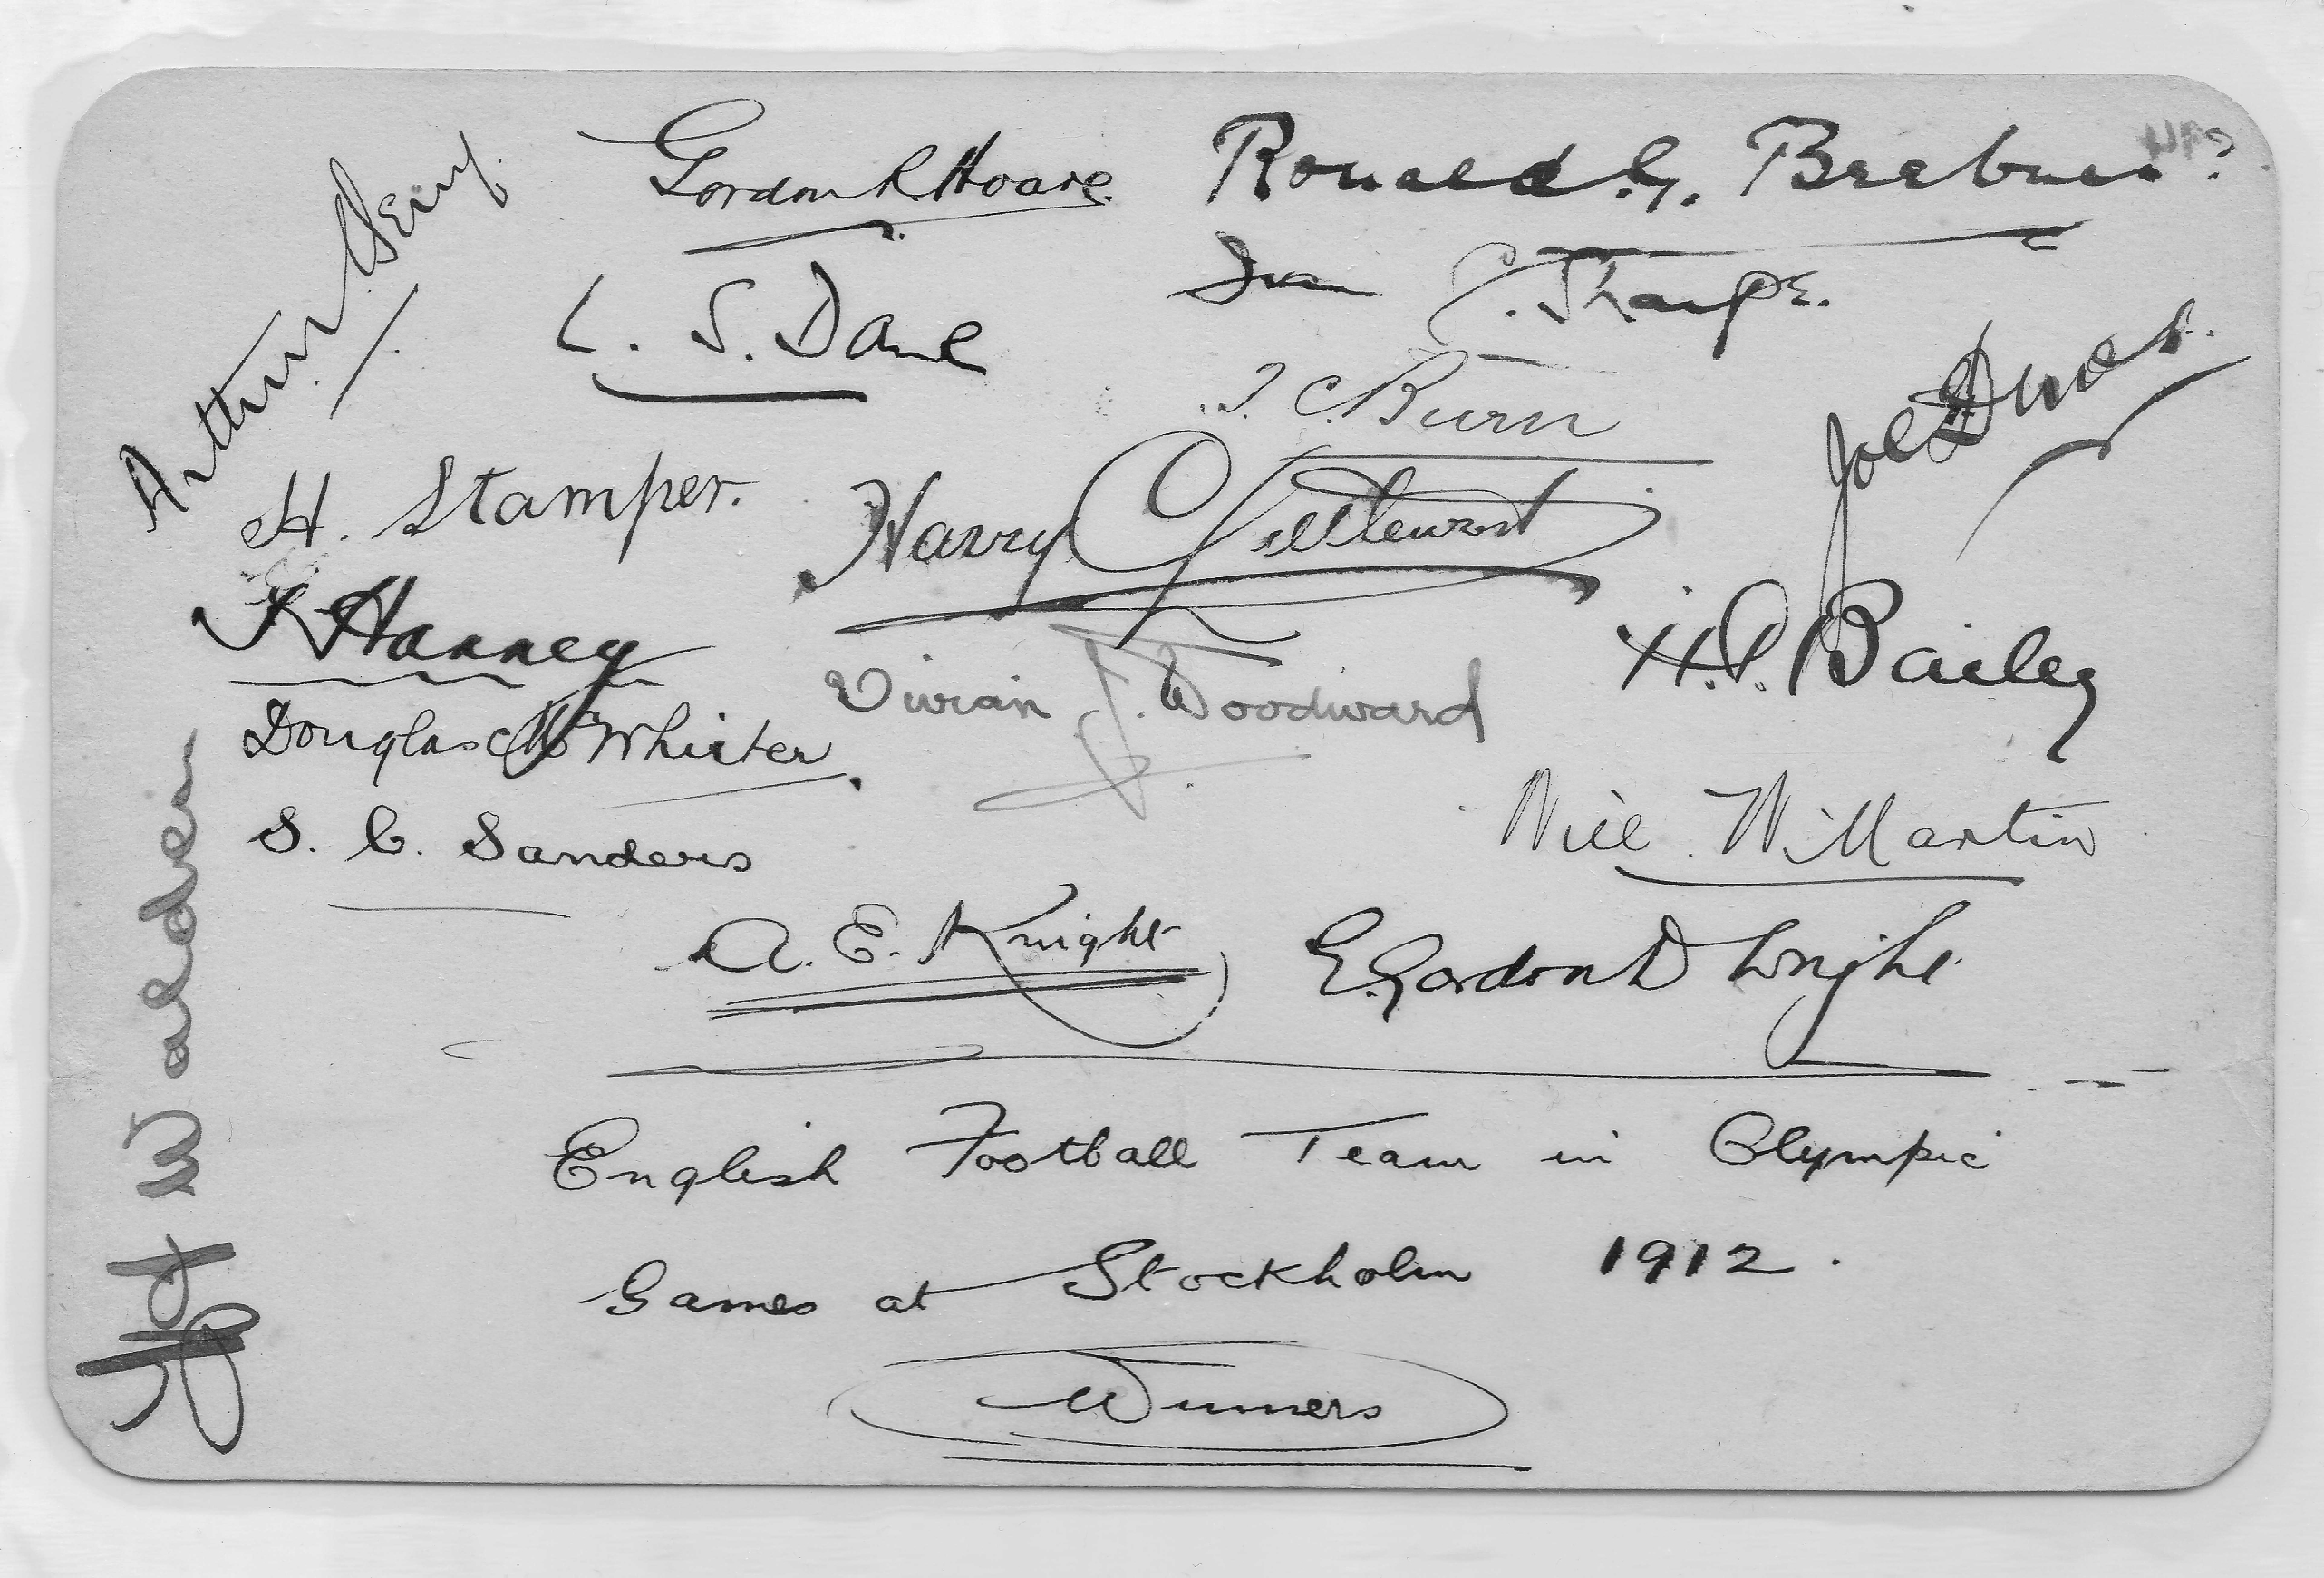 Arthur Berry.
Gordon R. Hoare.
Ronald G. Brebner
L. S. Dane
Ivan C. Sharpe.
T. C. Burn
Joe Dines.
H. Stamper.
Harry Littlewort
T Hanney
H.P. Bailey
Vivian J. Woodward
Douglas McWhirter
Will. W. Martin
S. C. Sanders
A. E. Knight
E. Gordon D Wright
H A Walden
English Football Team in Olympic
Games at Stockholm 1912.
Winners